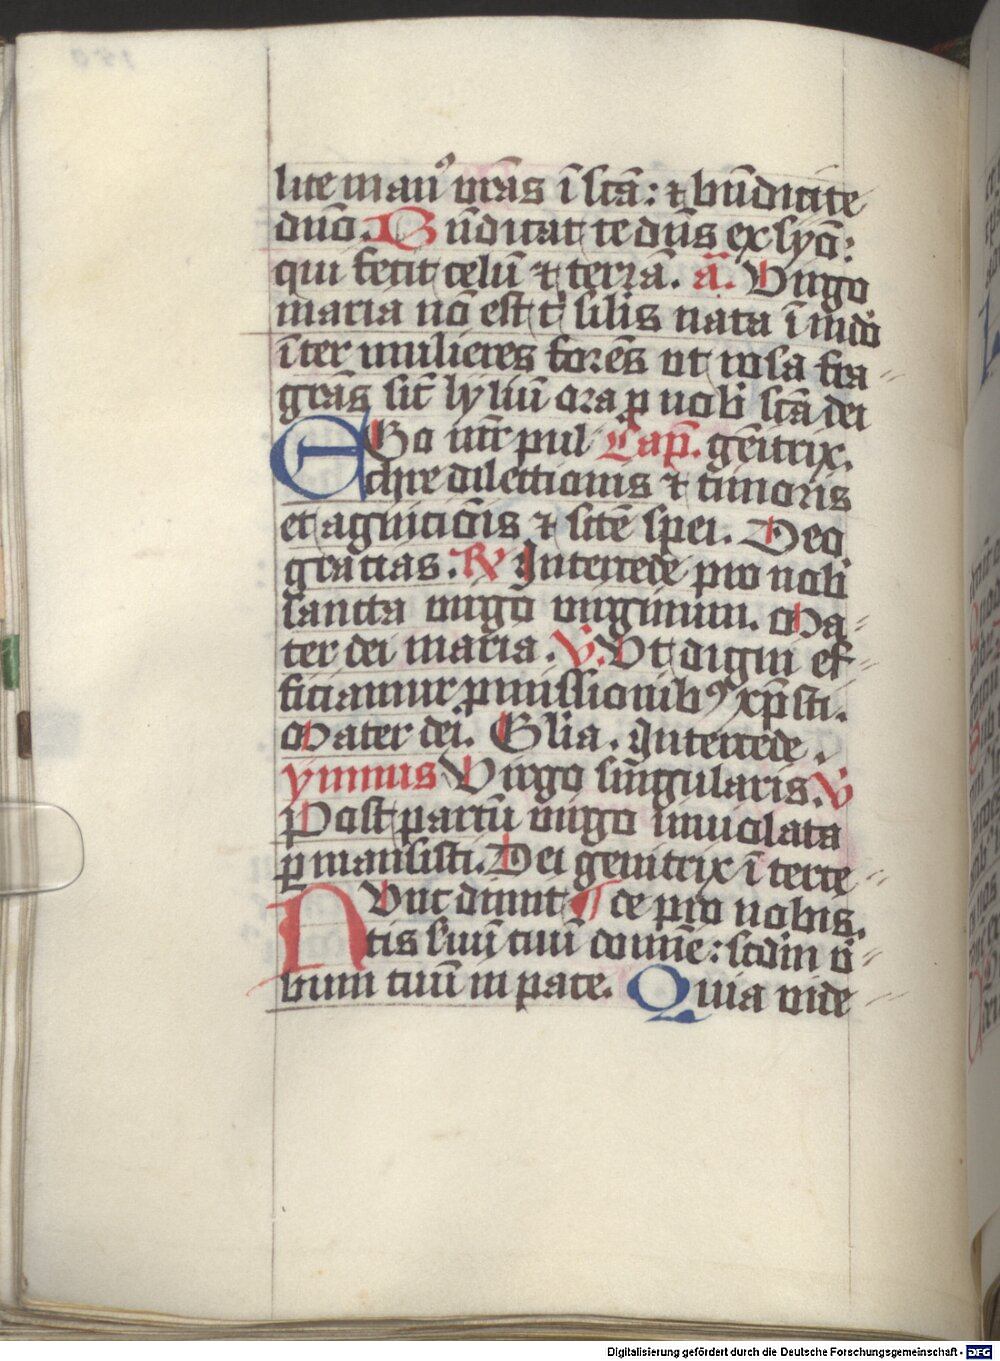 lite man⁹ vr̄as ī sc̄a: ⁊ bn̄dicite
dn̄o. Bn̄dicat te dn̄s ex syō:
qui fecit celū ⁊ terrā. a᷃. Virgo
maria nō est t͛ silis nata ī mūdo
īter mulieres florēs ut rosa fra
grās sic̄ lyliū ora ꝑ nob̄ sc̄a dei
Ego mr̄ pul Cap̄. gēitrix.
chre dilectionis ⁊ timoris
et agnicōis ⁊ sc̄te spei. Deo
gratias. R̷ Intercede pro nob̄
sancta virgo virginum. Ma
ter dei maria. V̷. Vt digni ef
ficiamur ꝓmissionib⁹ xp̄sti.
Mater dei. Glīa. Intercede.
ymnus Virgo sīngularis. V̷
Post partū virgo inviolata
ꝑmansisti. Dei genitrix ī terce
Nvnc dimit ¶ ce pro nobis.
tis suū tuū domīe: scd̄m v̄
bum tuū in pace. Quia vide
Digitalisierung gefördert durch die Deutsche Forschungsgemeinschaft - DFG